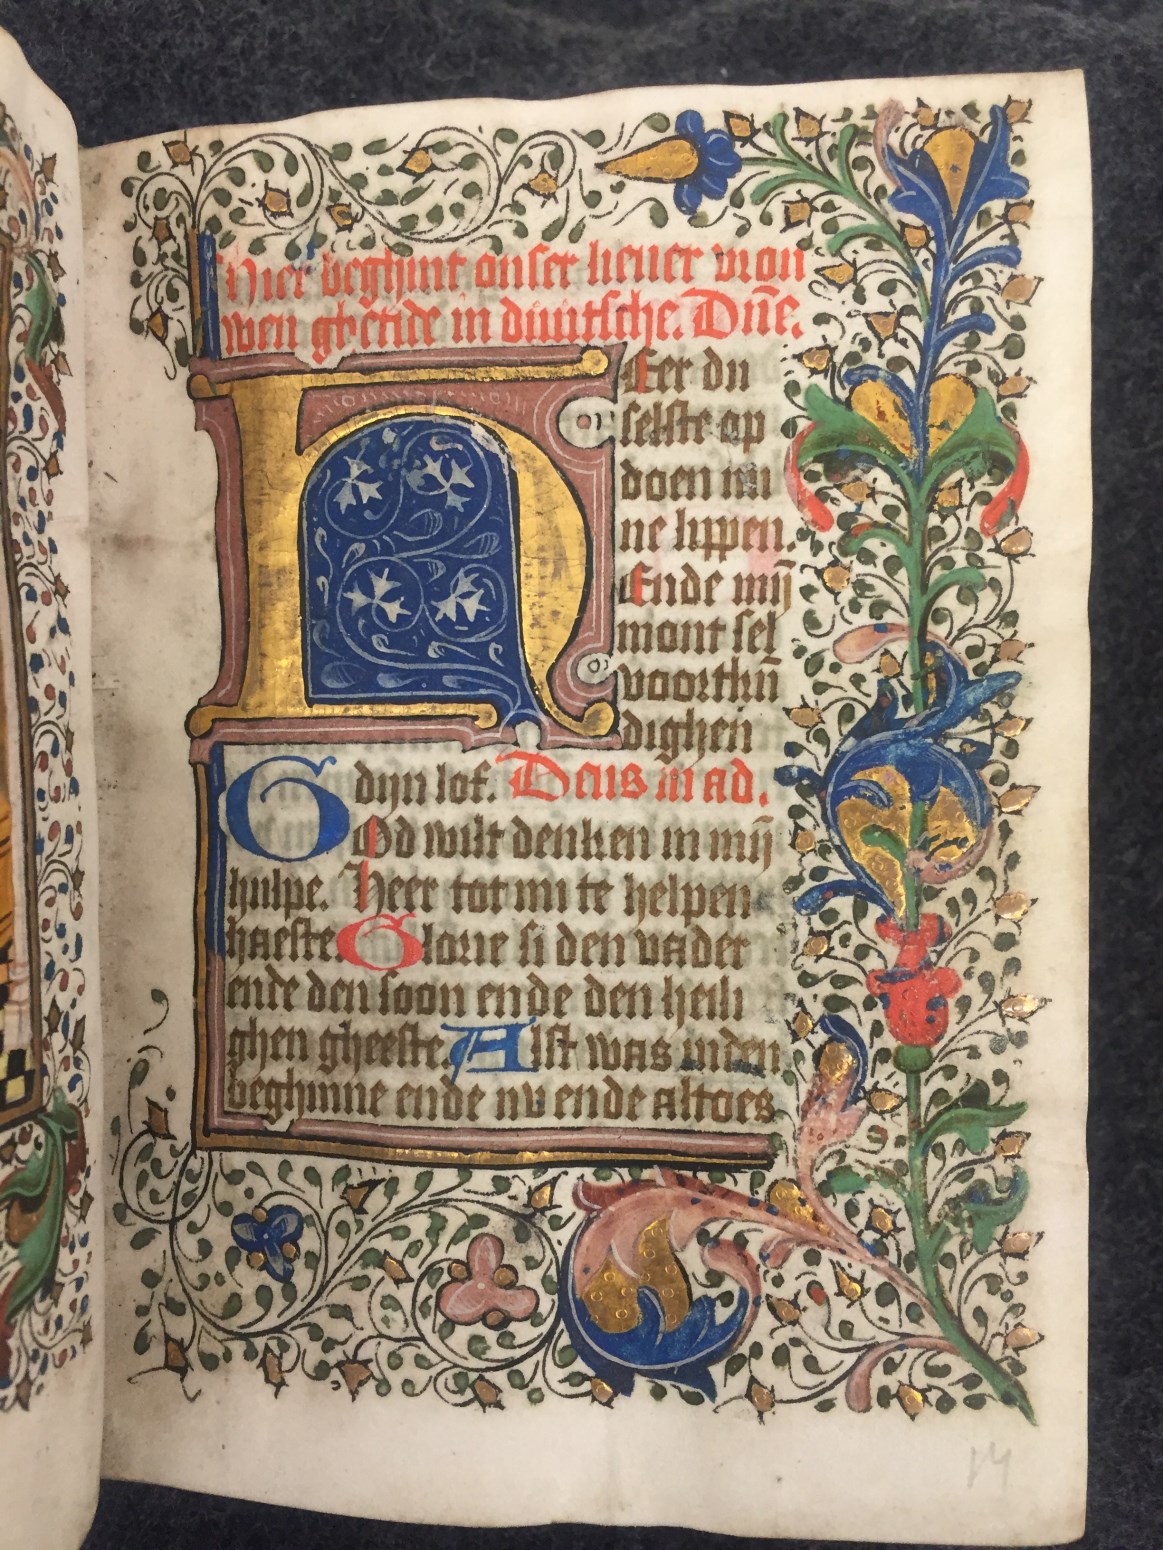 Hier beghint onser lieuer vrou
wen ghetide in duutsche. Dn̄e.
Heer du
selste op
doen mi
ne lippen.
Ende mij
mont sel
voortkū
dighen
dijn lof. Deus in ad.
God wilt denken in mij
hulpe. Heer tot mi te helpen
haeste Glorie si den vader
ende den soon ende den heili
ghen gheeste. Alst was inden
beghinne ende nv ende altoes
14